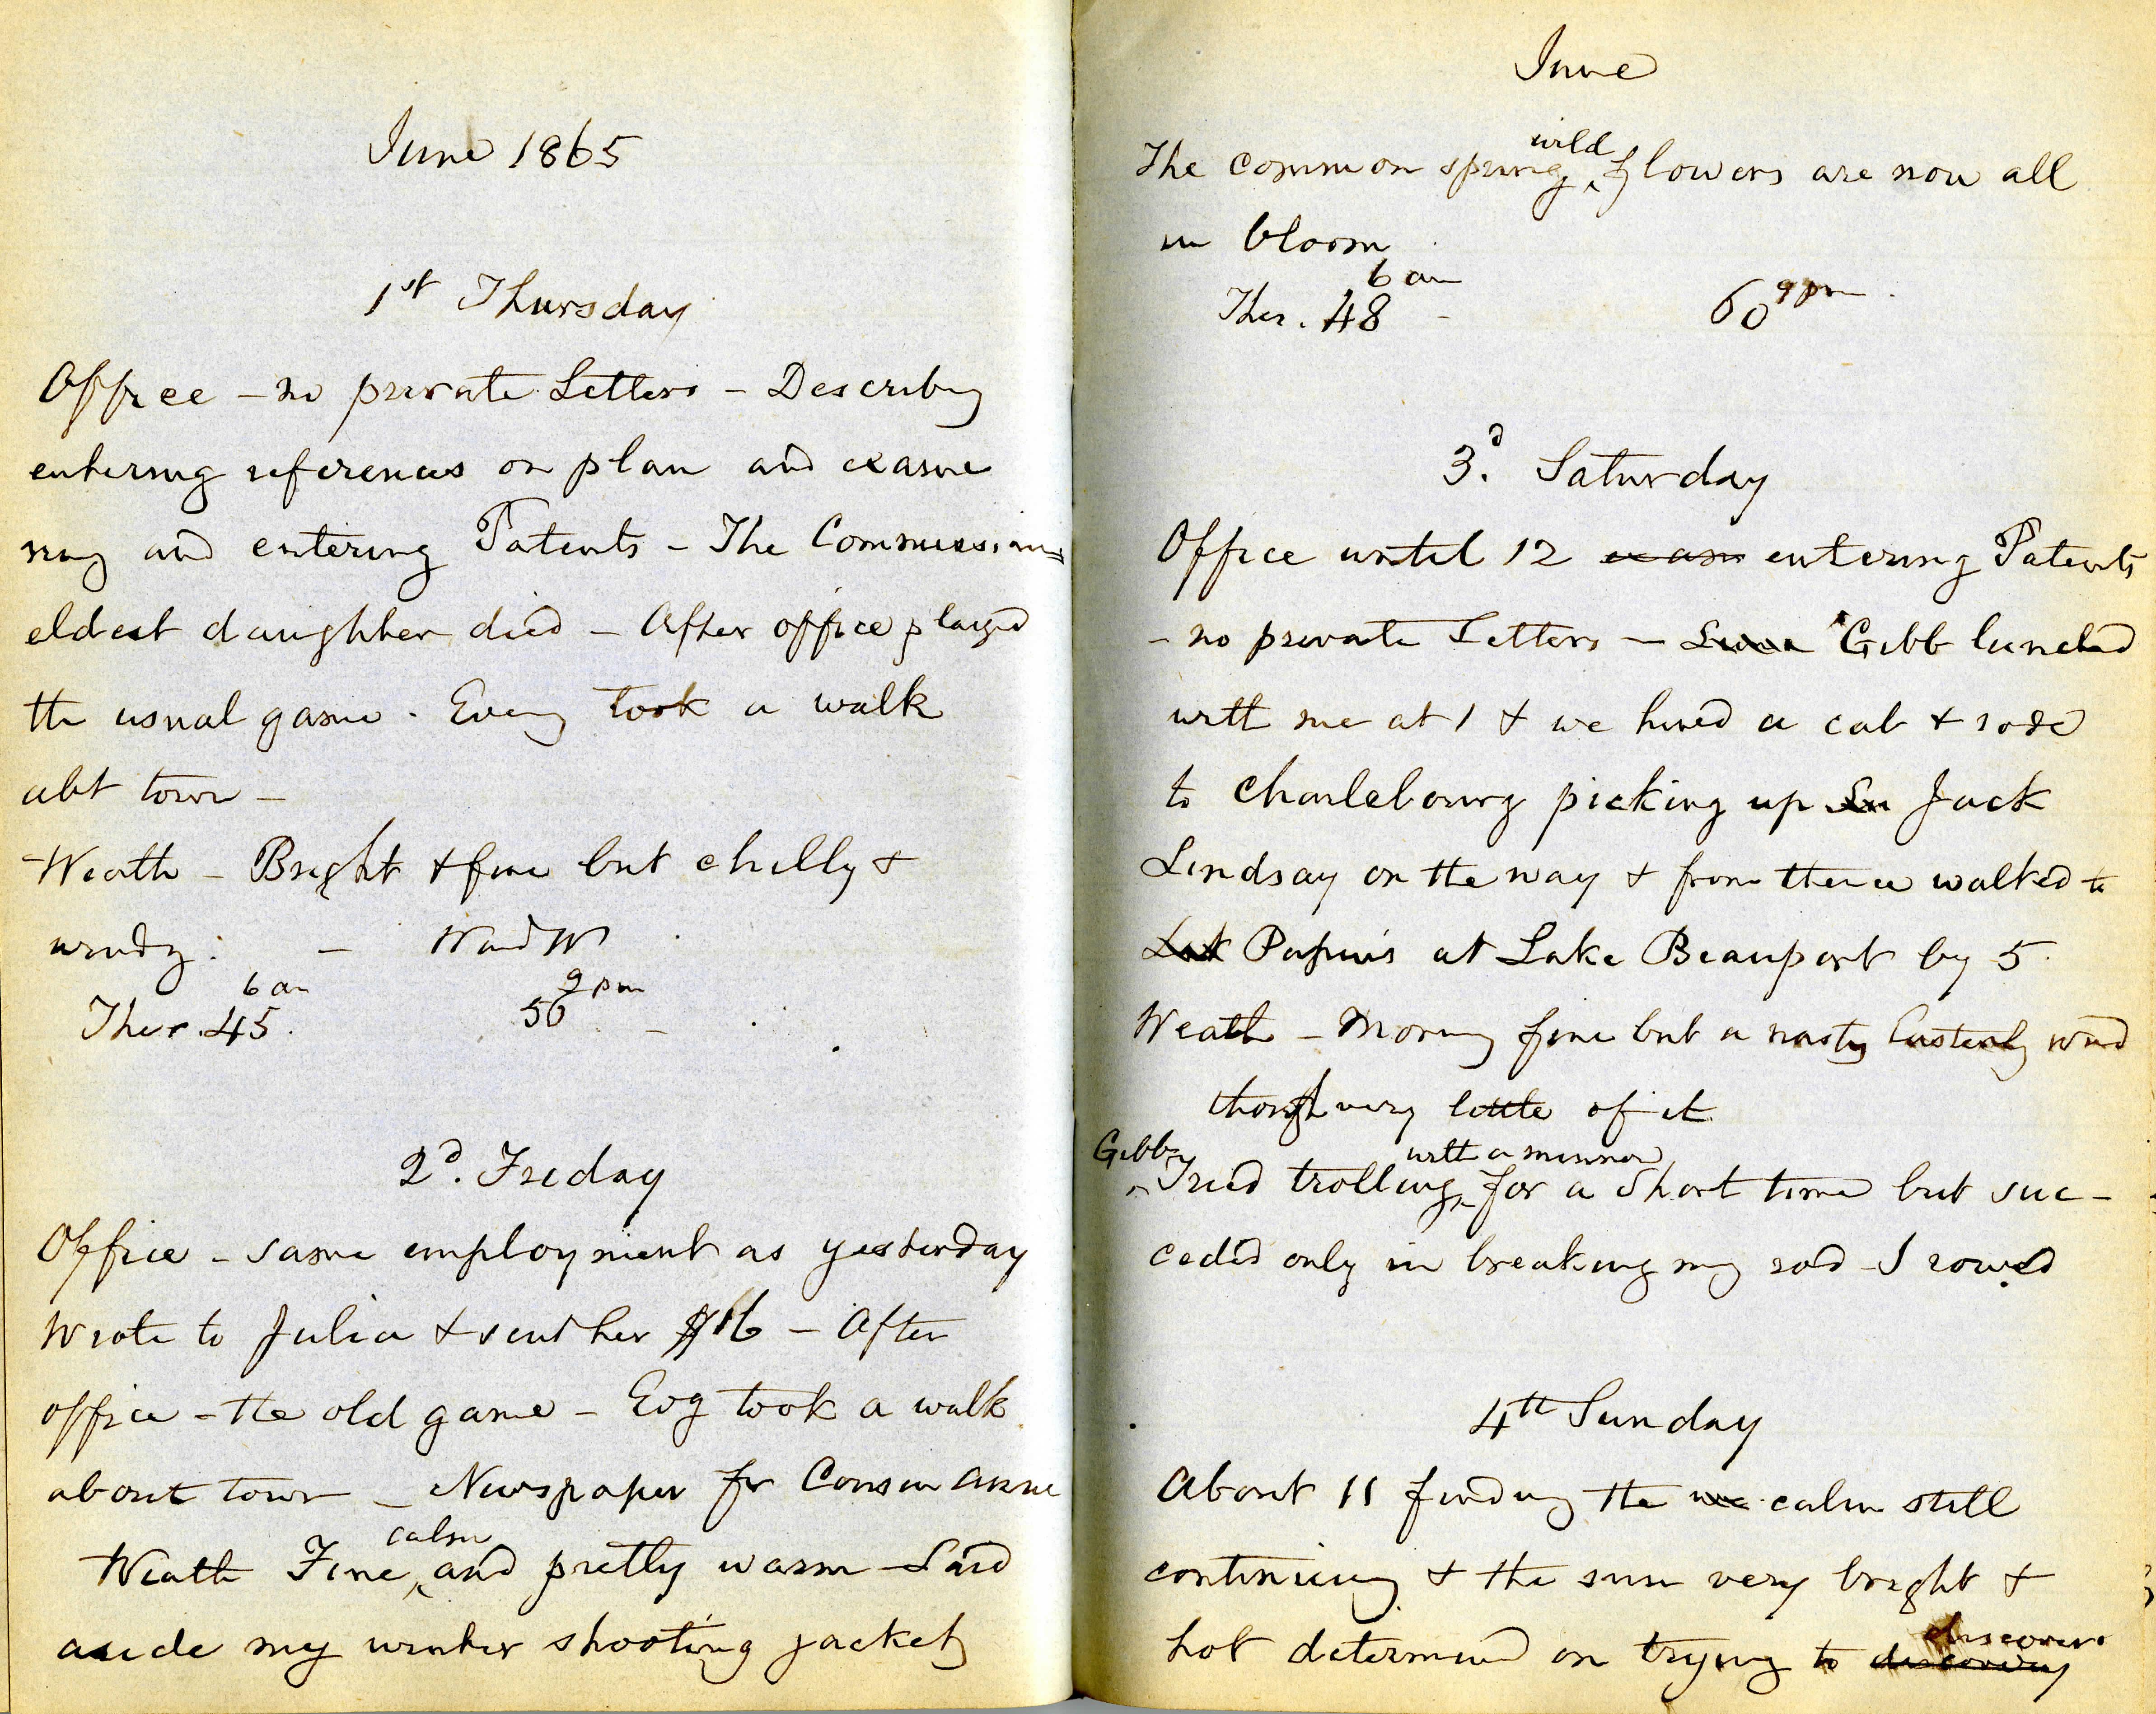 June 1865
1st Thursday
Office - no private Letters - Describing
entering references on plan and exami
ning and entering Patents - The Commissioners
eldest daughter died - After office played
the usual game. Eveng took a walk
abt town -
Weath - Bright & fine but chilly &
windy. - Wind W
6 am 9 pm
Ther. 45. 50 -
2d. Friday
Office - same employment as yesterday
Wrote to Julia & sent her $16 - After
office - the old game - Evg took a walk
about town - Newspaper fr Cousin Anne
calm
Weath Fine, and pretty warm - Laid
aside my winter shooting jacket
June
wild
The common spring flowers are now all
in bloom
6 am 9 pm
Ther. 48 - 60
3d. Saturday
Office until 12 exam entering Patents
- no private Letters - Gibb lunched
with me at 1 & we hired a cab & rode
to Charlebourg picking up Jack
Lindsay on the way & from thence walked to
Lak at Lake Beauport by 5.
Weath - Morning fine but a nasty Easterly wind
though very little of it.
Gibb with a minnow
Tried trolling for a short time but suc-
ceded only in breaking my rod - I rowed
4th Sunday
About 11 finding the calm still
continuing & the sun very bright &
discover
hot determined on trying to discovery